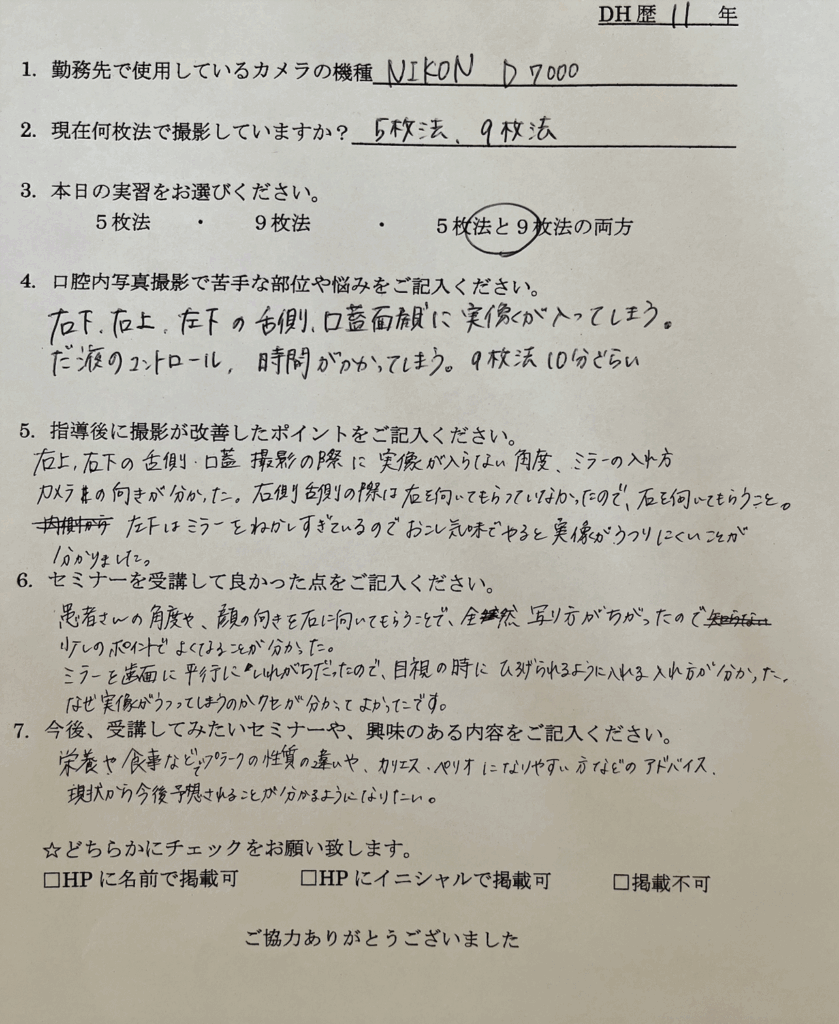 DH歴 11 年
1. 勤務先で使用しているカメラの機種 NIKON D7000
2. 現在何枚法で撮影していますか? 5枚法、9枚法
3. 本日の実習をお選びください。
5枚法 ・ 9枚法 ・ 5枚法と9枚法の両方
4. 口腔内写真撮影で苦手な部位や悩みをご記入ください。
右下、右上、左下の舌側、口蓋面観に実像が入ってしまう。
だ液のコントロール、時間がかかってしまう。9枚法10分ぐらい
5. 指導後に撮影が改善したポイントをご記入ください。
右上、右下の舌側・口蓋 撮影の際に実像が入らない角度、ミラーの入れ方
カメラの向きが分かった。右側舌側の際は右を向いてもらっていなかったので、右を向いてもらうこと。
左下はミラーをねかしすぎているのでおこし気味でやると実像がうつりにくいことが
分かりました。
6. セミナーを受講して良かった点をご記入ください。
患者さんの角度や、顔の向きを右に向いてもらうことで、全然写り方がちがったので
少しのポイントでよくなることが分かった。
ミラーを歯面に平行にいれがちだったので、目視の時にひろげられるように入れる入れ方が分かった。
なぜ実像がうつってしまうのかクセが分かってよかったです。
7. 今後、受講してみたいセミナーや、興味のある内容をご記入ください。
栄養や食事などでプラークの性質の違いや、カリエス・ペリオになりやすい方などのアドバイス、
現状から今後予想されることが分かるようになりたい。
☆どちらかにチェックをお願い致します。
□HPに名前で掲載可 □HPにイニシャルで掲載可 □掲載不可
ご協力ありがとうございました